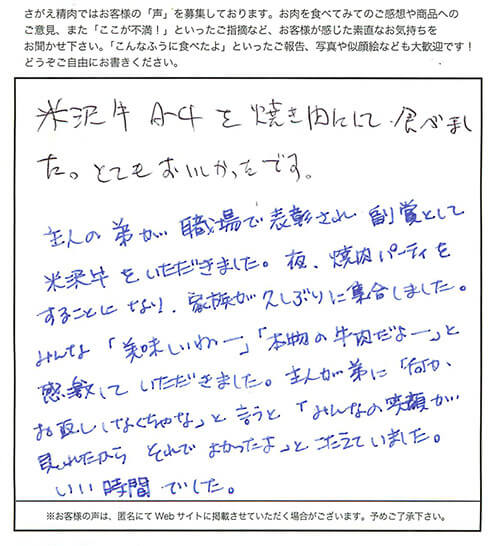 さがえ精肉ではお客様の「声」を募集しております。お肉を食べてみてのご感想や商品への
ご意見、また「ここが不満！」といったご指摘など、お客様が感じた素直なお気持ちを
お聞かせ下さい。「こんなふうに食べたよ」といったご報告、写真や似顔絵なども大歓迎です！
どうぞご自由にお書きください。
米沢牛 A-4 を 焼き肉にして 食べまし
た。とてもおいしかったです。
主人の弟が 職場で表彰され 副賞として
米沢牛をいただきました。夜、焼肉パーティを
することになり、家族が久しぶりに集合しました。
みんな「美味しいねー」「本物の牛肉だよー」と
感激して いただきました。主人が弟に「何か、
お返ししなくちゃな」と言うと「みんなの笑顔が
見れたから それでよかったよ」とこたえていました。
いい時間でした。
※お客様の声は、匿名にてWebサイトに掲載させていただく場合がございます。予めご了承下さい。